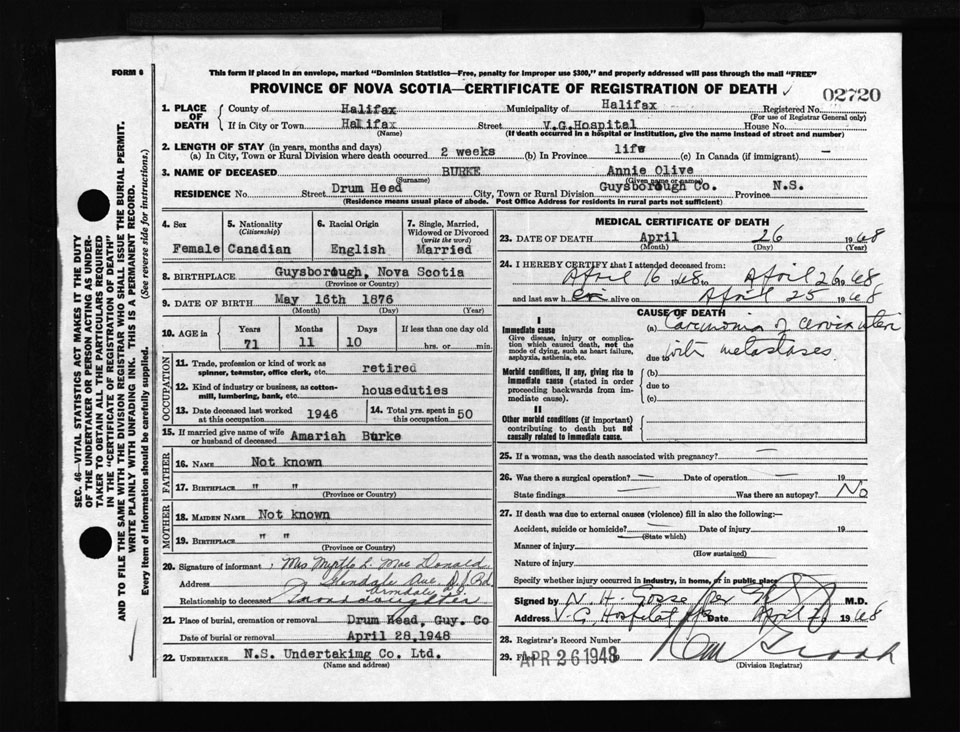 This form if placed in an envelope, marked "Dominion Statistics—Free, penalty for improper use $300," and properly addressed will pass through the mail "FREE"
FORM 6
PROVINCE OF NOVA SCOTIA—CERTIFICATE OF REGISTRATION OF DEATH ✓ 02720
SEC. 46—VITAL STATISTICS ACT MAKES IT THE DUTY
OF THE UNDERTAKER OR PERSON ACTING AS UNDER-
TAKER TO OBTAIN ALL THE PARTICULARS REQUIRED
IN THE "CERTIFICATE OF REGISTRATION OF DEATH"
AND TO FILE THE SAME WITH THE DIVISION REGISTRAR WHO SHALL ISSUE THE BURIAL PERMIT.
WRITE PLAINLY WITH UNFADING INK. THIS IS A PERMANENT RECORD.
Every item of information should be carefully supplied. (See reverse side for instructions.)
1. PLACE OF DEATH { County of Halifax Municipality of Halifax Registered No.
(For use of Registrar General only)
If in City or Town Halifax Street V.G.Hospital House No.
(Name) (If death occurred in a hospital or institution, give the name instead of street and number)
2. LENGTH OF STAY (in years, months and days)
(a) In City, Town or Rural Division where death occurred 2 weeks (b) In Province life (c) In Canada (if immigrant) —
3. NAME OF DECEASED BURKE Annie Olive
(Surname) (Given name or names)
RESIDENCE No. Street Drum Head City, Town or Rural Division Guysborough Co. Province N.S.
(Residence means usual place of abode. Post Office Address for residents in rural parts not sufficient)
4. Sex 5. Nationality (Citizenship) 6. Racial Origin 7. Single, Married, Widowed or Divorced (write the word)
Female Canadian English Married
8. BIRTHPLACE Guysborough, Nova Scotia
(Province or Country)
9. DATE OF BIRTH May 16th 1876
(Month) (Day) (Year)
10. AGE in Years Months Days If less than one day old
71 11 10 hrs. or min.
OCCUPATION
11. Trade, profession or kind of work as spinner, teamster, office clerk, etc. retired
12. Kind of industry or business, as cotton-mill, lumbering, bank, etc. houseduties
13. Date deceased last worked at this occupation 1946 14. Total yrs. spent in this occupation 50
15. If married give name of wife or husband of deceased Amariah Burke
FATHER
16. NAME Not known
17. BIRTHPLACE " "
(Province or Country)
MOTHER
18. MAIDEN NAME Not known
19. BIRTHPLACE " "
(Province or Country)
20. Signature of informant Mrs Myrtle L. Mac Donald
Address Glendale Ave. Armdale
Relationship to deceased Granddaughter
21. Place of burial, cremation or removal Drum Head, Guy. Co
Date of burial or removal April 28,1948
22. UNDERTAKER N.S. Undertakimg Co. Ltd.
(Name and address)
MEDICAL CERTIFICATE OF DEATH
23. DATE OF DEATH April 26 1948
(Month) (Day) (Year)
24. I HEREBY CERTIFY that I attended deceased from:
April 16 1948 to April 26 1948
and last saw h er alive on April 25 1948
CAUSE OF DEATH
I
Immediate cause
Give disease, injury or complication which caused death, not the mode of dying, such as heart failure, asphyxia, asthenia, etc.
(a) Carcinoma of cervix uteri
due to with metastases.
Morbid conditions, if any, giving rise to immediate cause (stated in order proceeding backwards from immediate cause).
(b)
due to
(c)
II
Other morbid conditions (if important) contributing to death but not causally related to immediate cause.
25. If a woman, was the death associated with pregnancy? —
26. Was there a surgical operation? — Date of operation — 19
State findings — Was there an autopsy? No
27. If death was due to external causes (violence) fill in also the following:—
Accident, suicide or homicide? — Date of injury 19
(State which)
Manner of injury
(How sustained)
Nature of injury
Specify whether injury occurred in industry, in home, or in public place
Signed by N. H. Gosse per M.D.
Address V.G. Hospital Date April 1948
28. Registrar's Record Number
29. Filed APR 26 1948 19
(Division Registrar)